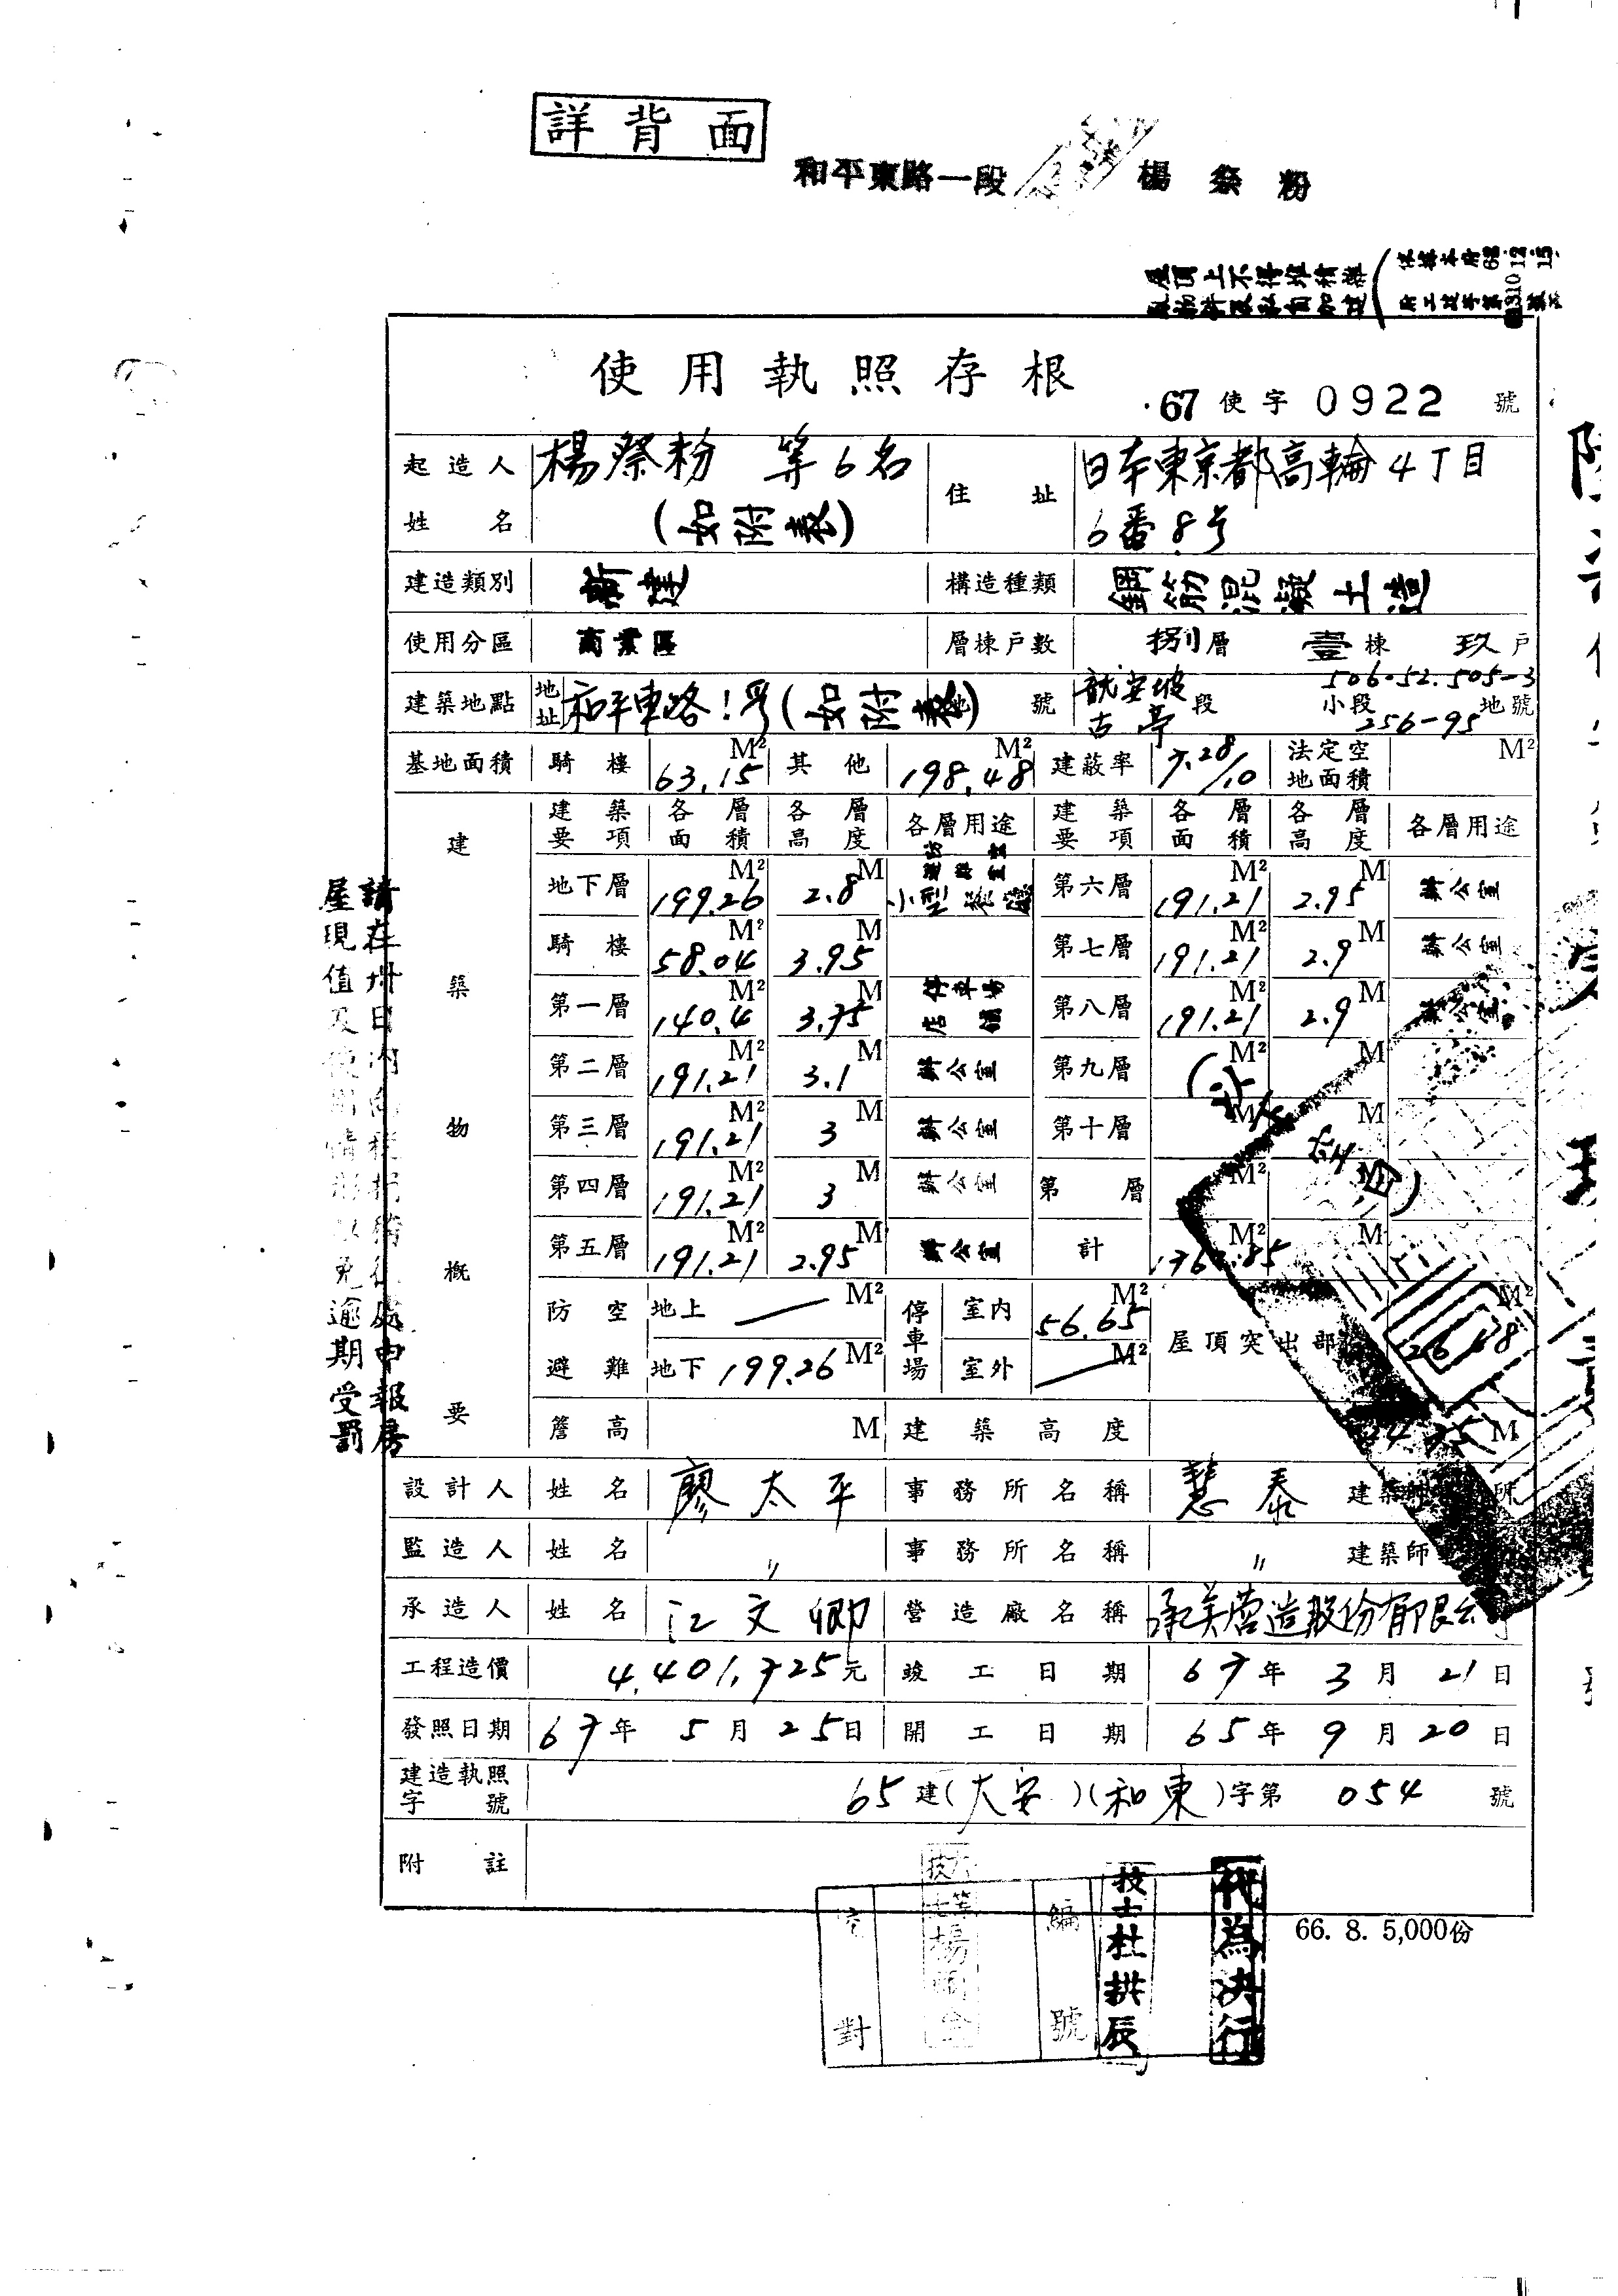 詳背面
和平東路一段
楊祭粉
屋頂上不得堆積雜
使用執照存根
67使字0922號
起造人姓名 楊祭粉 等6名 (如附表) 住址 日本東京都高輪4丁目6番8号
建造類別 新建 構造種類 鋼筋混凝土造
使用分區 商業區 層棟戶數 捌層 壹棟 玖戶
建築地點 地址 和平東路 (如附表) 地號 龍安坡 段 小段 506-52.505-3 地號
古亭 256-95
基地面積 騎樓 63.15 M² 其他 198.48 M² 建蔽率 7.28/10 法定空地面積 M²
建築物概要
建築要項 各層面積 各層高度 各層用途 建築要項 各層面積 各層高度 各層用途
地下層 199.26 M² 2.8 M 避難室 小型 第六層 191.21 M² 2.95 M 辦公室
騎樓 58.04 M² 3.95 M 第七層 191.21 M² 2.9 M 辦公室
第一層 140.4 M² 3.75 M 停車場 店舖 第八層 191.21 M² 2.9 M 辦公室
第二層 191.21 M² 3.1 M 辦公室 第九層 M² M
第三層 191.21 M² 3 M 辦公室 第十層 M² M
第四層 191.21 M² 3 M 辦公室 第 層 M² M
第五層 191.21 M² 2.95 M 辦公室 計 M² M
防空避難 地上 — M² 停車場 室內 56.65 M² 屋頂突出部 M²
地下 199.26 M² 室外 — M²
簷高 M 建築高度 M
設計人 姓名 廖太平 事務所名稱 慧泰 建築師
監造人 姓名 〃 事務所名稱 〃 建築師
承造人 姓名 江文卿 營造廠名稱 承美營造股份有限公司
工程造價 4,401,725元 竣工日期 67年3月21日
發照日期 67年5月25日 開工日期 65年9月20日
建造執照字號 65建(大安)(和東)字第054號
附註
66. 8. 5,000份
校對
編號
技士杜拱辰
代為決行